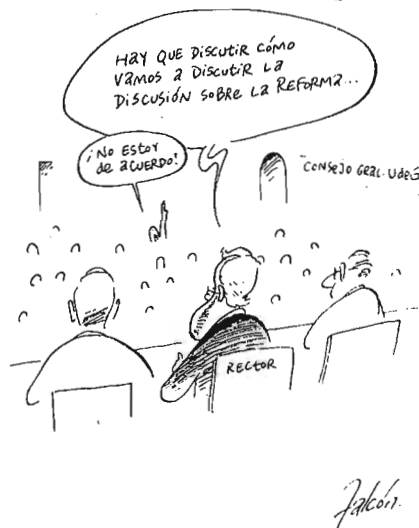 HAY QUE DISCUTIR CÓMO
VAMOS A DISCUTIR LA
DISCUSIÓN SOBRE LA REFORMA...
¡NO ESTOY
de aCUERDO!
CONSEJO GRAL. UdeG
RECTOR
Falcón.